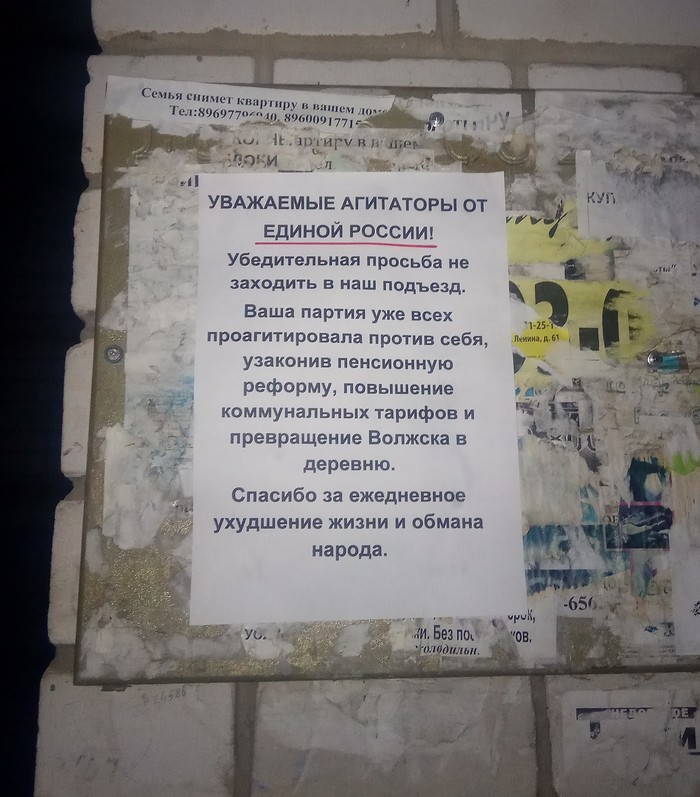 Семья снимет квартиру в вашем
УВАЖАЕМЫЕ АГИТАТОРЫ ОТ
ЕДИНОЙ РОССИИ!
Убедительная просьба не
заходить в наш подъезд.
Ваша партия уже всех
проагитировала против себя,
узаконив пенсионную
реформу, повышение
коммунальных тарифов и
превращение Волжска в
деревню.
Спасибо за ежедневное
ухудшение жизни и обмана
народа.
КУП
Ленина, д. 61
-656